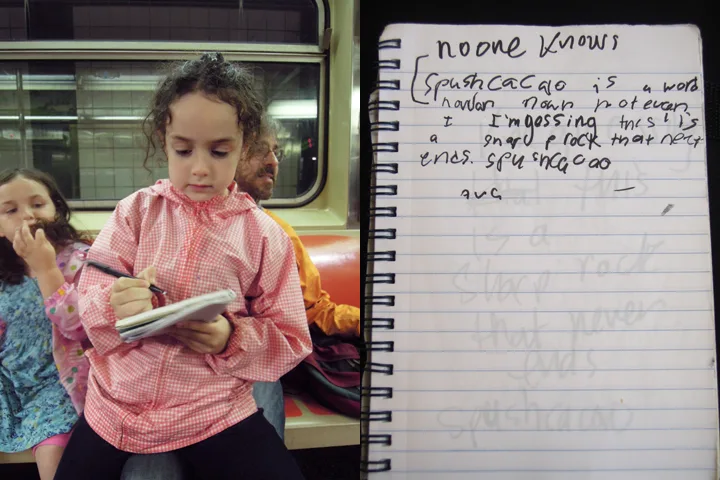 no one knows
spushcacao is a word
nown not even
I I'm gossing this is
a sharp rock that never
ends. spushcacao
ava
that this
is a
sharp rock
that never
ends
spushcacao